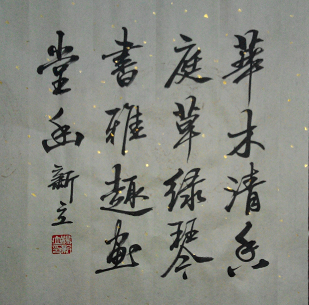 華木清香
庭草綠琴
書雅趣畫
堂幽新立